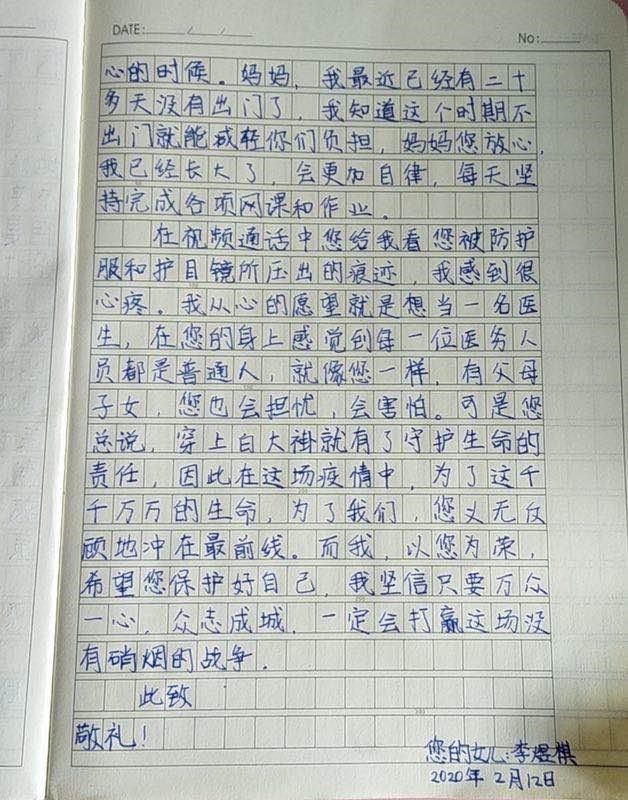 DATE: / /
No:
心的时候。妈妈，我最近已经有二十
多天没有出门了，我知道这个时期不
出门就能减轻你们负担，妈妈您放心，
我已经长大了，会更加自律，每天坚
持完成各项网课和作业。
在视频通话中您给我看您被防护
服和护目镜所压出的痕迹，我感到很
心疼。我从心的愿望就是想当一名医
生，在您的身上感觉到每一位医务人
员都是普通人，就像您一样，有父母
子女，您也会担忧，会害怕。可是您
总说，穿上白大褂就有了守护生命的
责任，因此在这场疫情中，为了这千
千万万的生命，为了我们，您义无反
顾地冲在最前线。而我，以您为荣，
希望您保护好自己，我坚信只要万众
一心，众志成城，一定会打赢这场没
有硝烟的战争.
此致
敬礼！
您的女儿：李煜棋
2020年2月12日